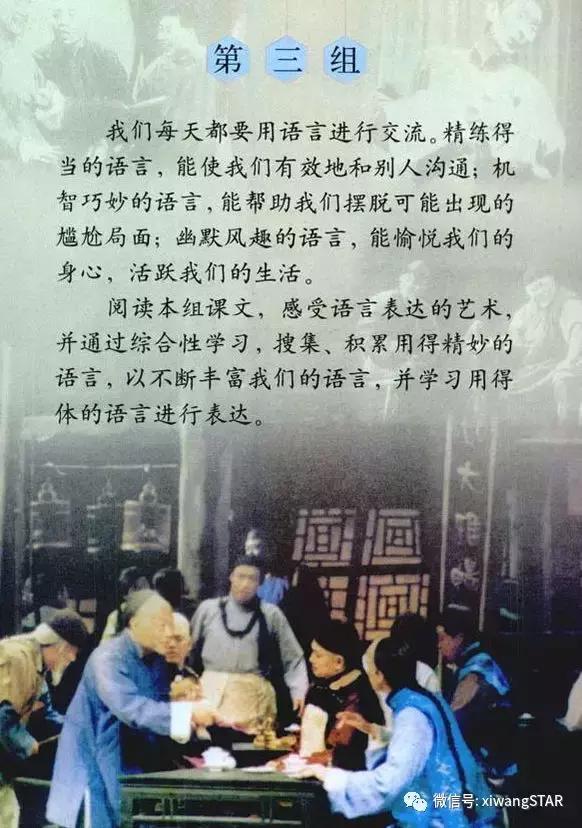 第三组
我们每天都要用语言进行交流。精练得
当的语言，能使我们有效地和别人沟通；机
智巧妙的语言，能帮助我们摆脱可能出现的
尴尬局面；幽默风趣的语言，能愉悦我们的
身心，活跃我们的生活。
阅读本组课文，感受语言表达的艺术，
并通过综合性学习，搜集、积累用得精妙的
语言，以不断丰富我们的语言，并学习用得
体的语言进行表达。
微信号: xiwangSTAR